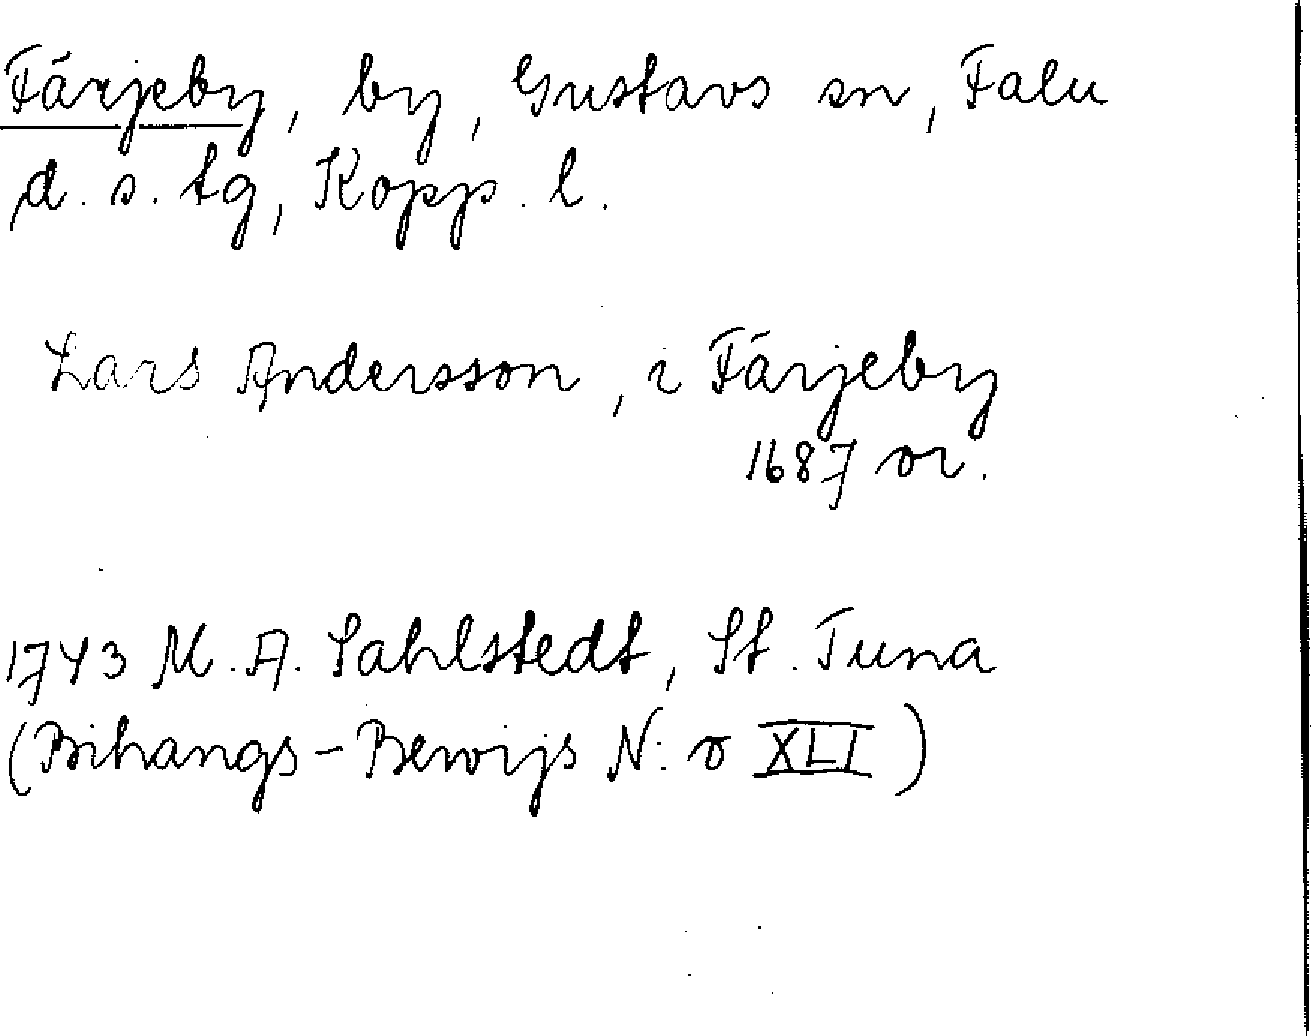 Färjeby, by, Gustavs sn, Falu
d. s. tg, Kopp. l.
Lars Andersson, i Färjeby
1687 or.
1743 M. A. Sahlstedt, St. Tuna
(Bihangs-Bewijs N:o XLI)